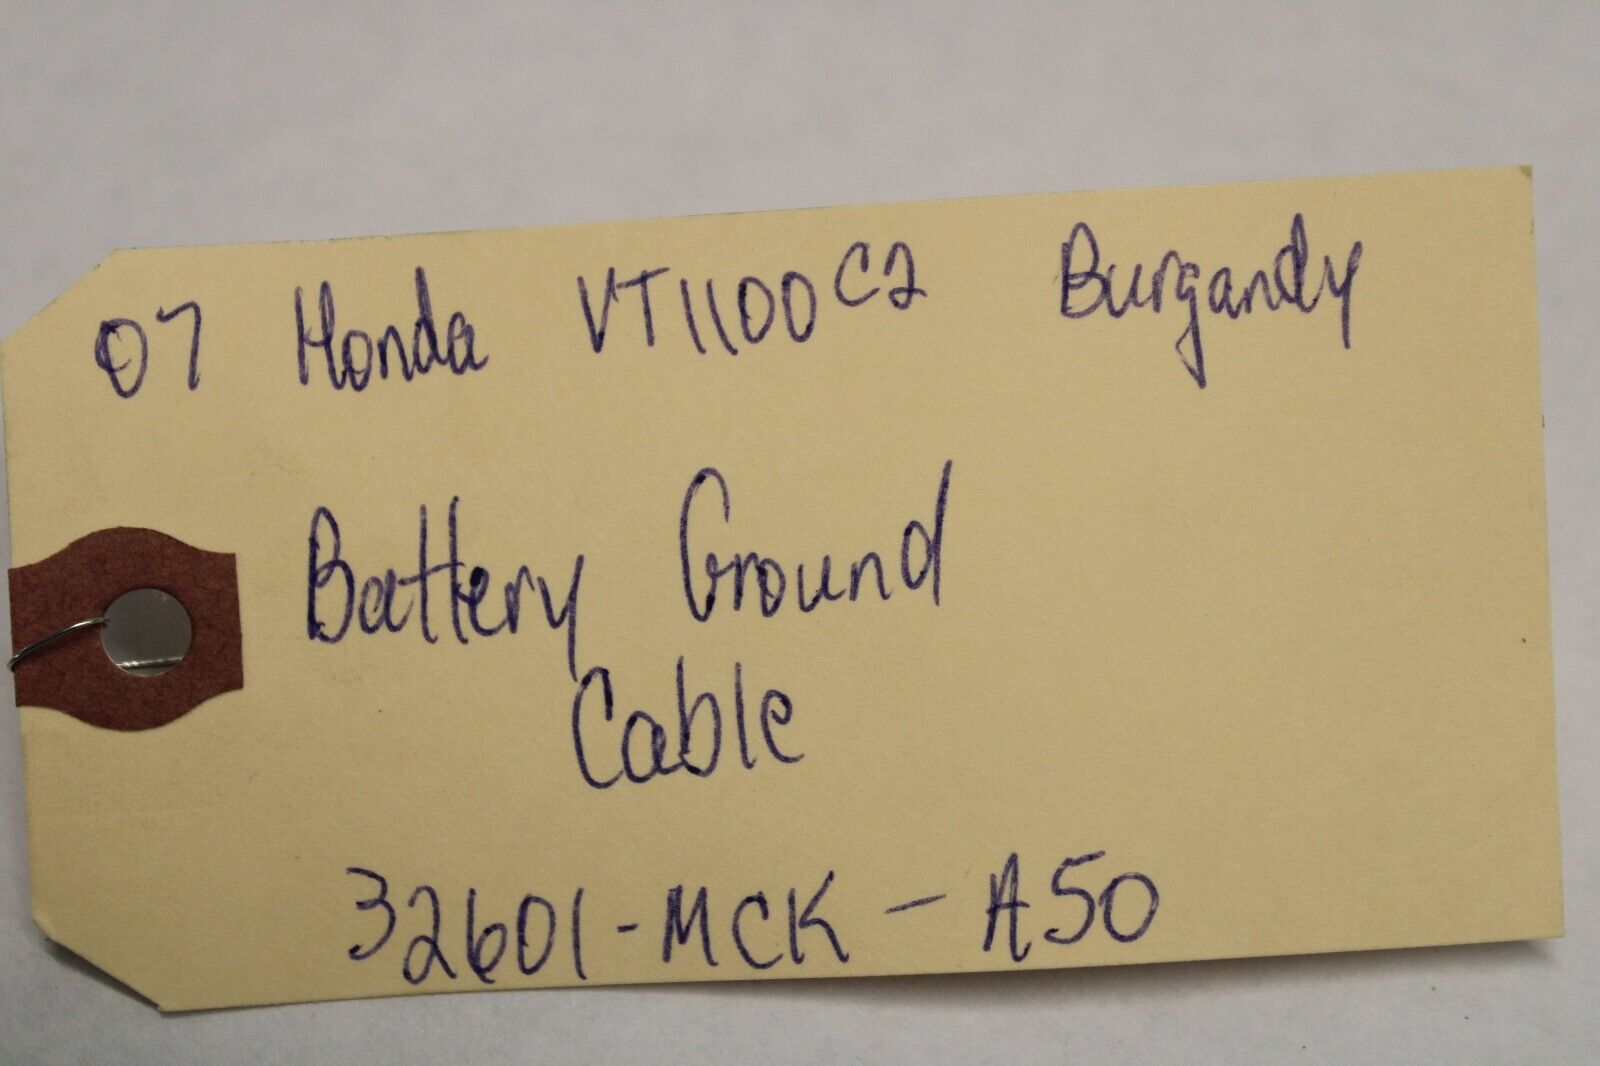 07 Honda VT1100C2 Burgandy
Battery Ground
Cable
32601-MCK-A50